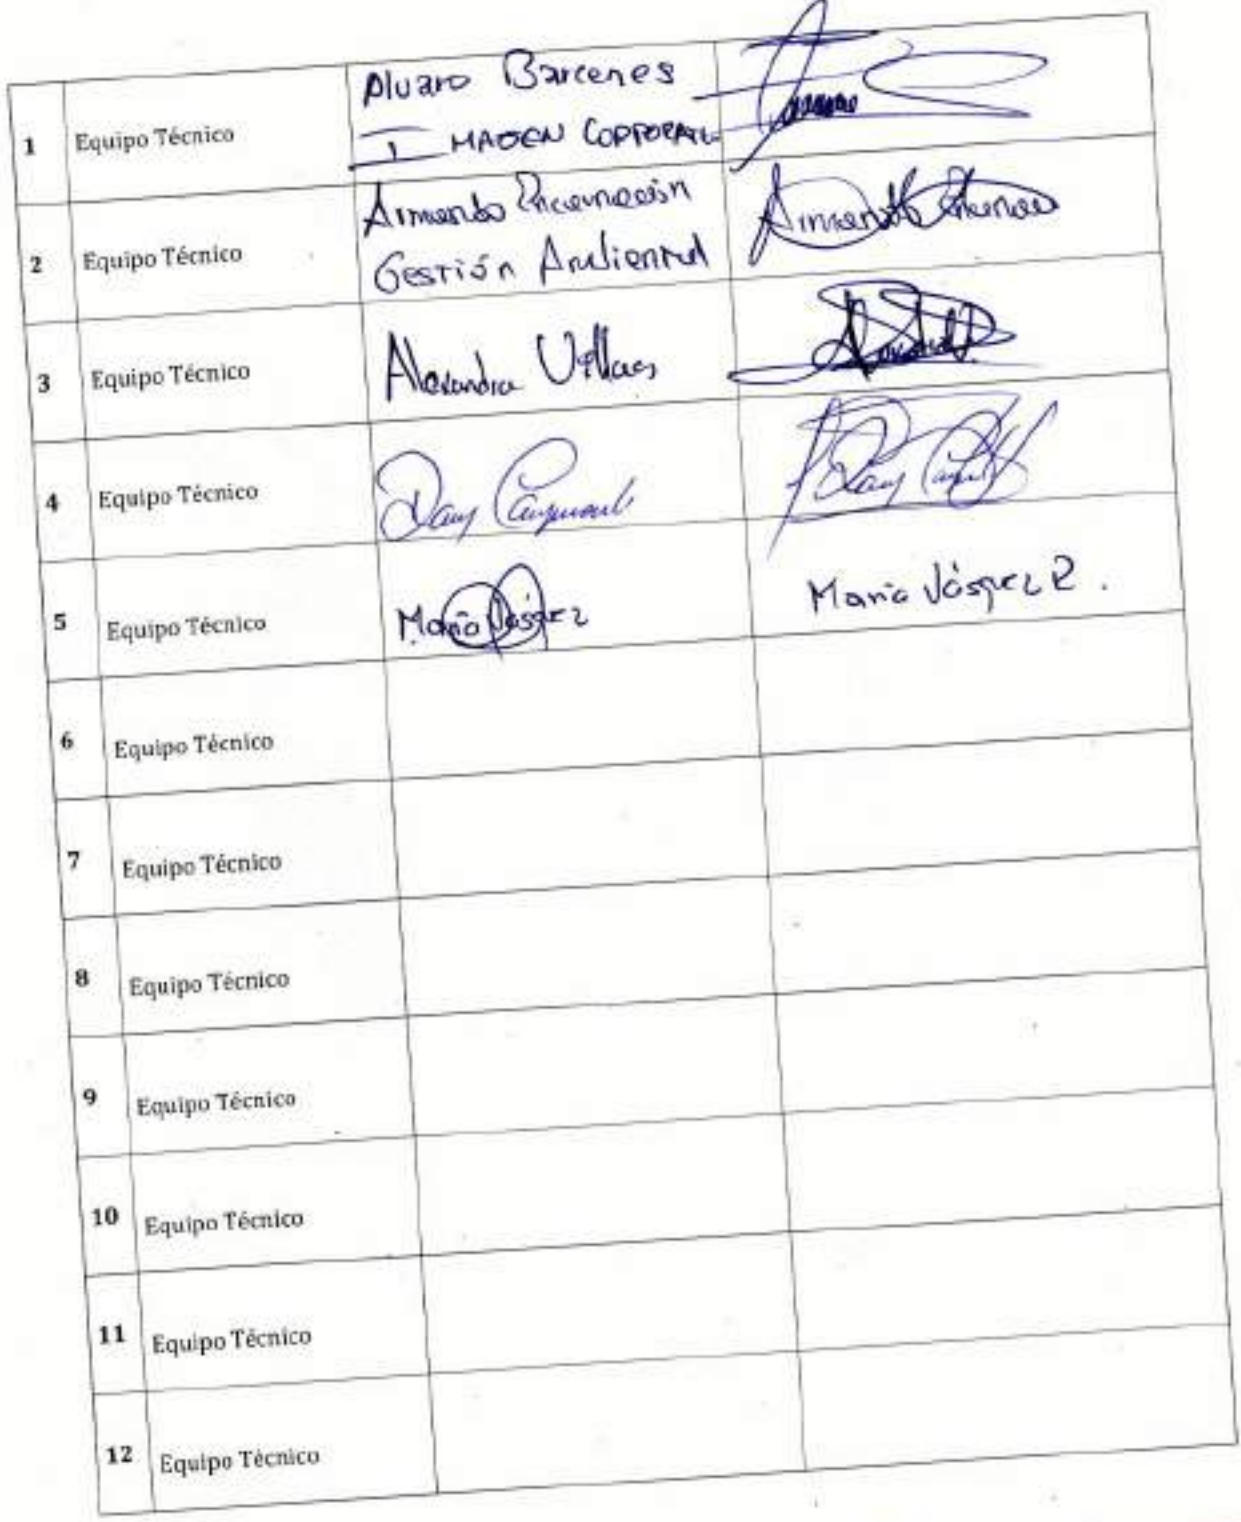 1 Equipo Técnico Alvaro Barcenes
IMAGEN CORPORATI
2 Equipo Técnico Armando Encarnación Armando
Gestión Ambiental
3 Equipo Técnico Alexandra Villacs
4 Equipo Técnico Dany
5 Equipo Técnico María Vásquez María Vásquez R.
6 Equipo Técnico
7 Equipo Técnico
8 Equipo Técnico
9 Equipo Técnico
10 Equipo Técnico
11 Equipo Técnico
12 Equipo Técnico